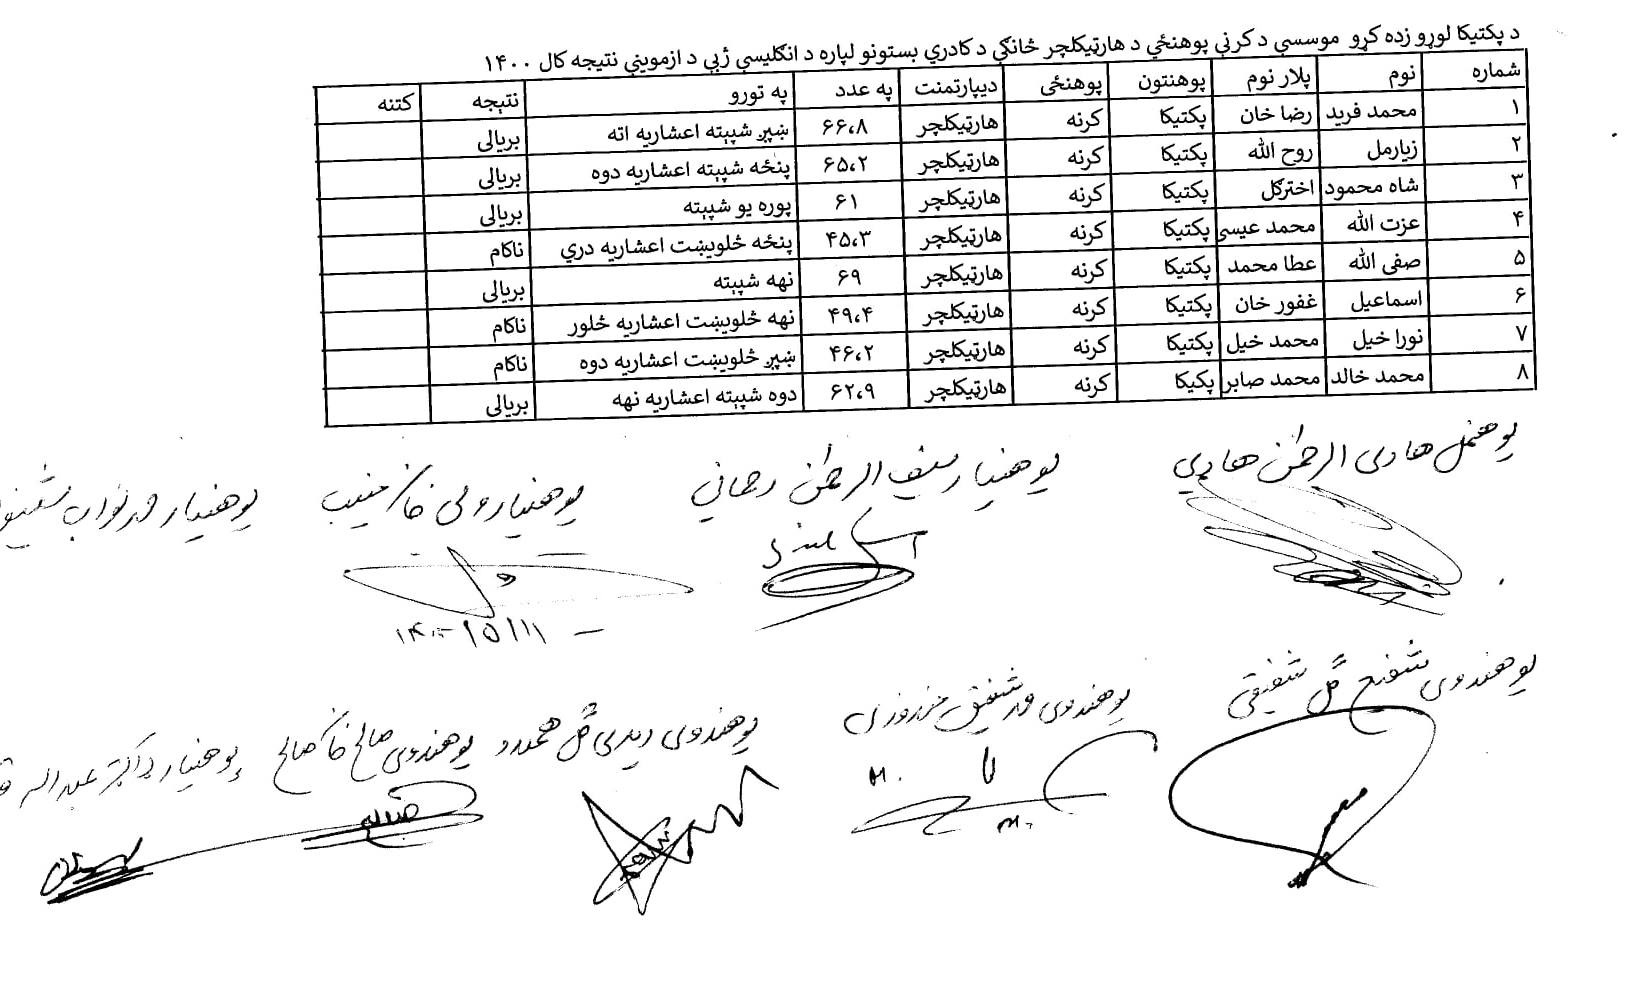 د پکتیکا لوړو زده کړو موسسې د کرنې پوهنځي د هارټیکلچر څانګې د کادري بستونو لپاره د انګلیسې ژبې د ازموینې نتیجه کال ۱۴۰۰
شماره نوم پلار نوم پوهنتون پوهنځی دیپارتمنت په عدد په تورو نتېجه کتنه
۱ محمد فرید رضا خان پکتیکا کرنه هارټیکلچر ۶۶،۸ ښپږ شپېته اعشاریه اته بریالی
۲ زیارمل روح الله پکتیکا کرنه هارټیکلچر ۶۵،۲ پنځه شپېته اعشاریه دوه بریالی
۳ شاه محمود اخترګل پکتیکا کرنه هارټیکلچر ۶۱ پوره یو شپېته بریالی
۴ عزت الله محمد عیسی پکتیکا کرنه هارټیکلچر ۴۵،۳ پنځه څلویښت اعشاریه درې ناکام
۵ صفی الله عطا محمد پکتیکا کرنه هارټیکلچر ۶۹ نهه شپېته بریالی
۶ اسماعیل غفور خان پکتیکا کرنه هارټیکلچر ۴۹،۴ نهه څلویښت اعشاریه څلور ناکام
۷ نورا خیل محمد خیل پکتیکا کرنه هارټیکلچر ۴۶،۲ ښپږ څلویښت اعشاریه دوه ناکام
۸ محمد خالد محمد صابر پکیکا کرنه هارټیکلچر ۶۲،۹ دوه شپېته اعشاریه نهه بریالی
پوهنمل هادی الرحمن هادي پوهنیار سیف الرحمن رحماني پوهنیار ولی خان منیب پوهنیار نواب
۱۴۰۰/۵/۱۱
پوهندوی شفیع ګل شفیقي پوهندوی شفیق پوهندوی ګل همدرد پوهندوی صالح خان صالح پوهنیار ډاکتر عبدالله